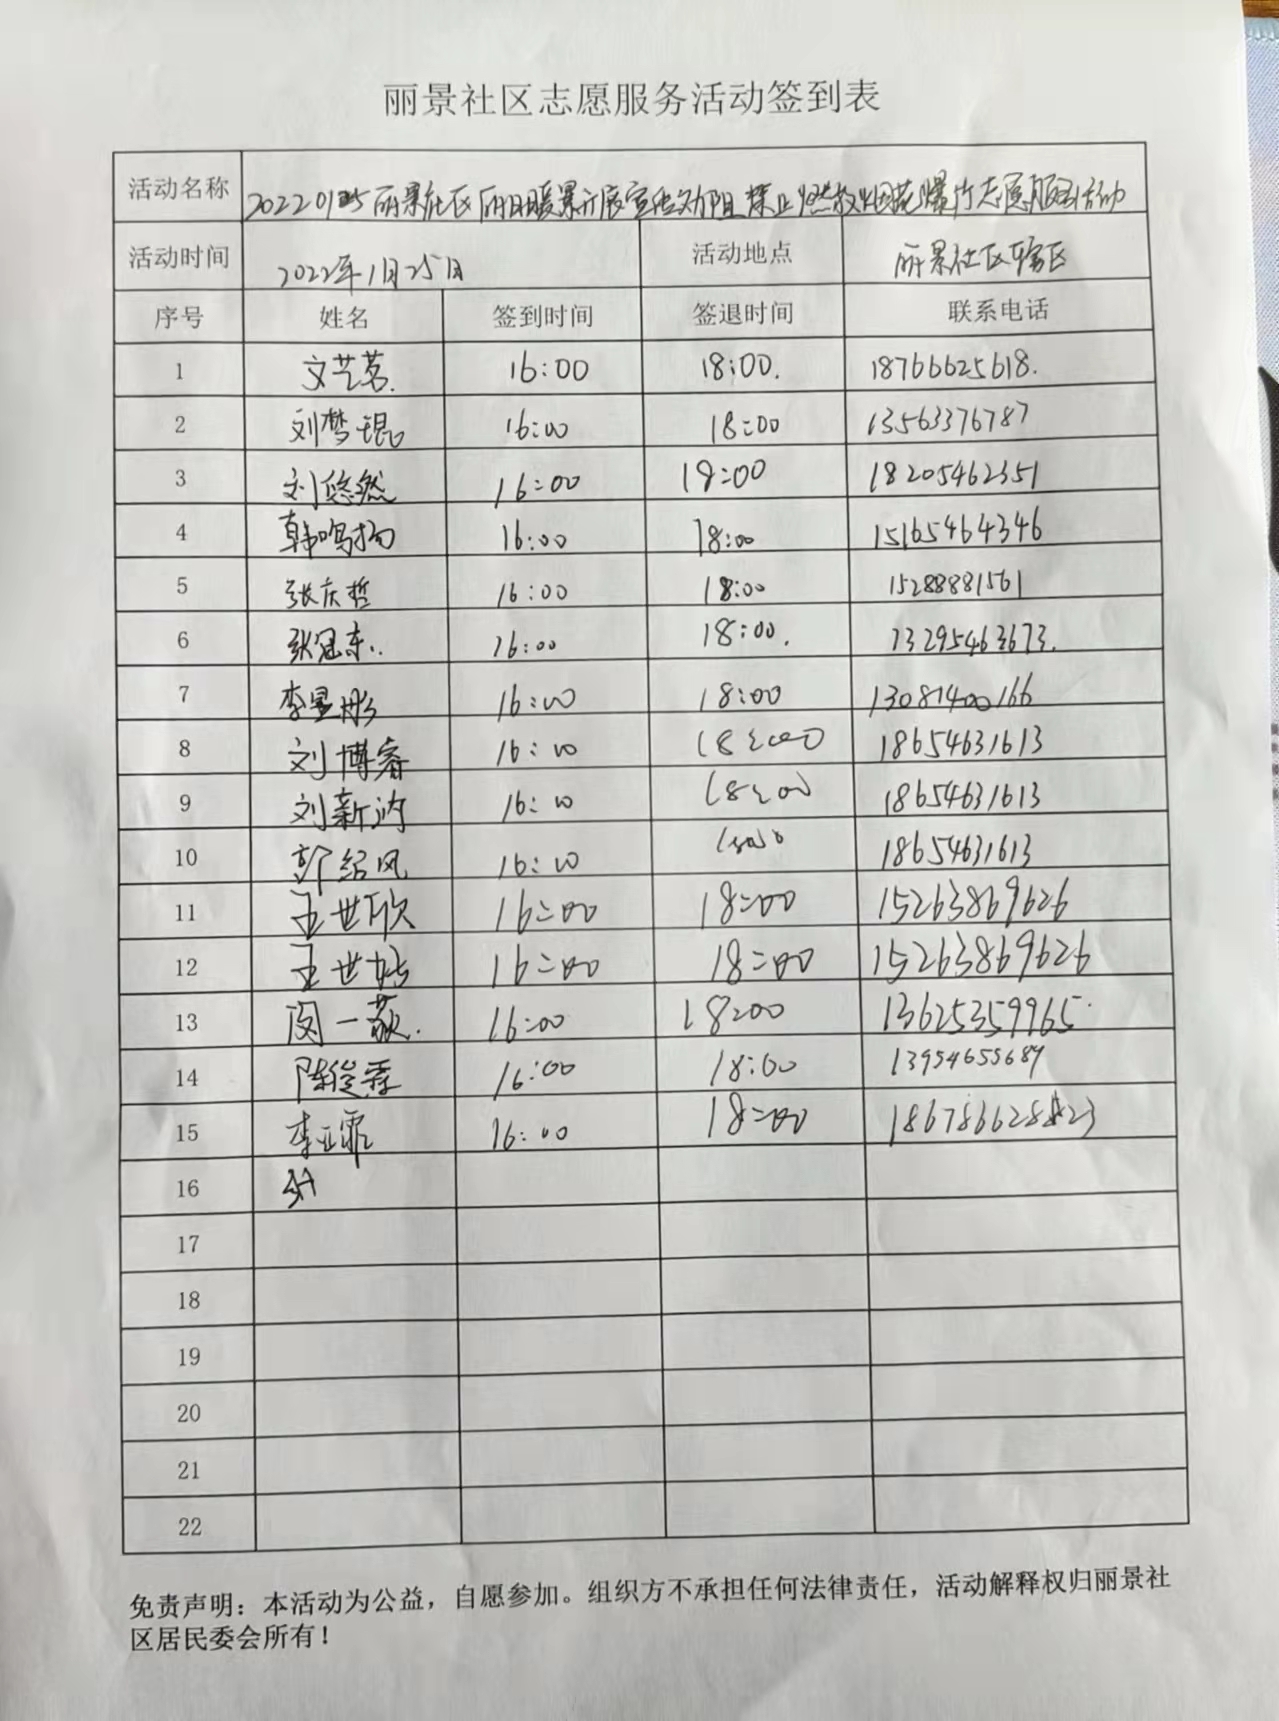 丽景社区志愿服务活动签到表
活动名称 20220125丽景社区丽日暖景开展宣传劝阻禁止燃放烟花爆竹志愿服务活动
活动时间 2022年1月25日 活动地点 丽景社区辖区
序号 姓名 签到时间 签退时间 联系电话
1 文艺茗. 16:00 18:00. 18766625618.
2 刘梦琨 16:00 18:00 13563376787
3 刘悠然 16:00 18:00 18205462351
4 韩鸣扬 16:00 18:00 15165464346
5 张庆哲 16:00 18:00 15288881561
6 张冠东. 16:00 18:00. 13295463673.
7 李昱彤 16:00 18:00 13081400166
8 刘博睿 16:00 18:00 18654631613
9 刘新 16:00 18:00 18654631613
10 郭绍风 16:00 18654631613
11 王世欣 16:00 18:00 15263869626
12 王世 16:00 18:00 15263869626
13 闵一 16:00 18:00 13625359965
14 陈俊霖 16:00 18:00 13954655689
15 李亚霏 16:00 18:00
16
17
18
19
20
21
22
免责声明：本活动为公益，自愿参加。组织方不承担任何法律责任，活动解释权归丽景社
区居民委会所有！